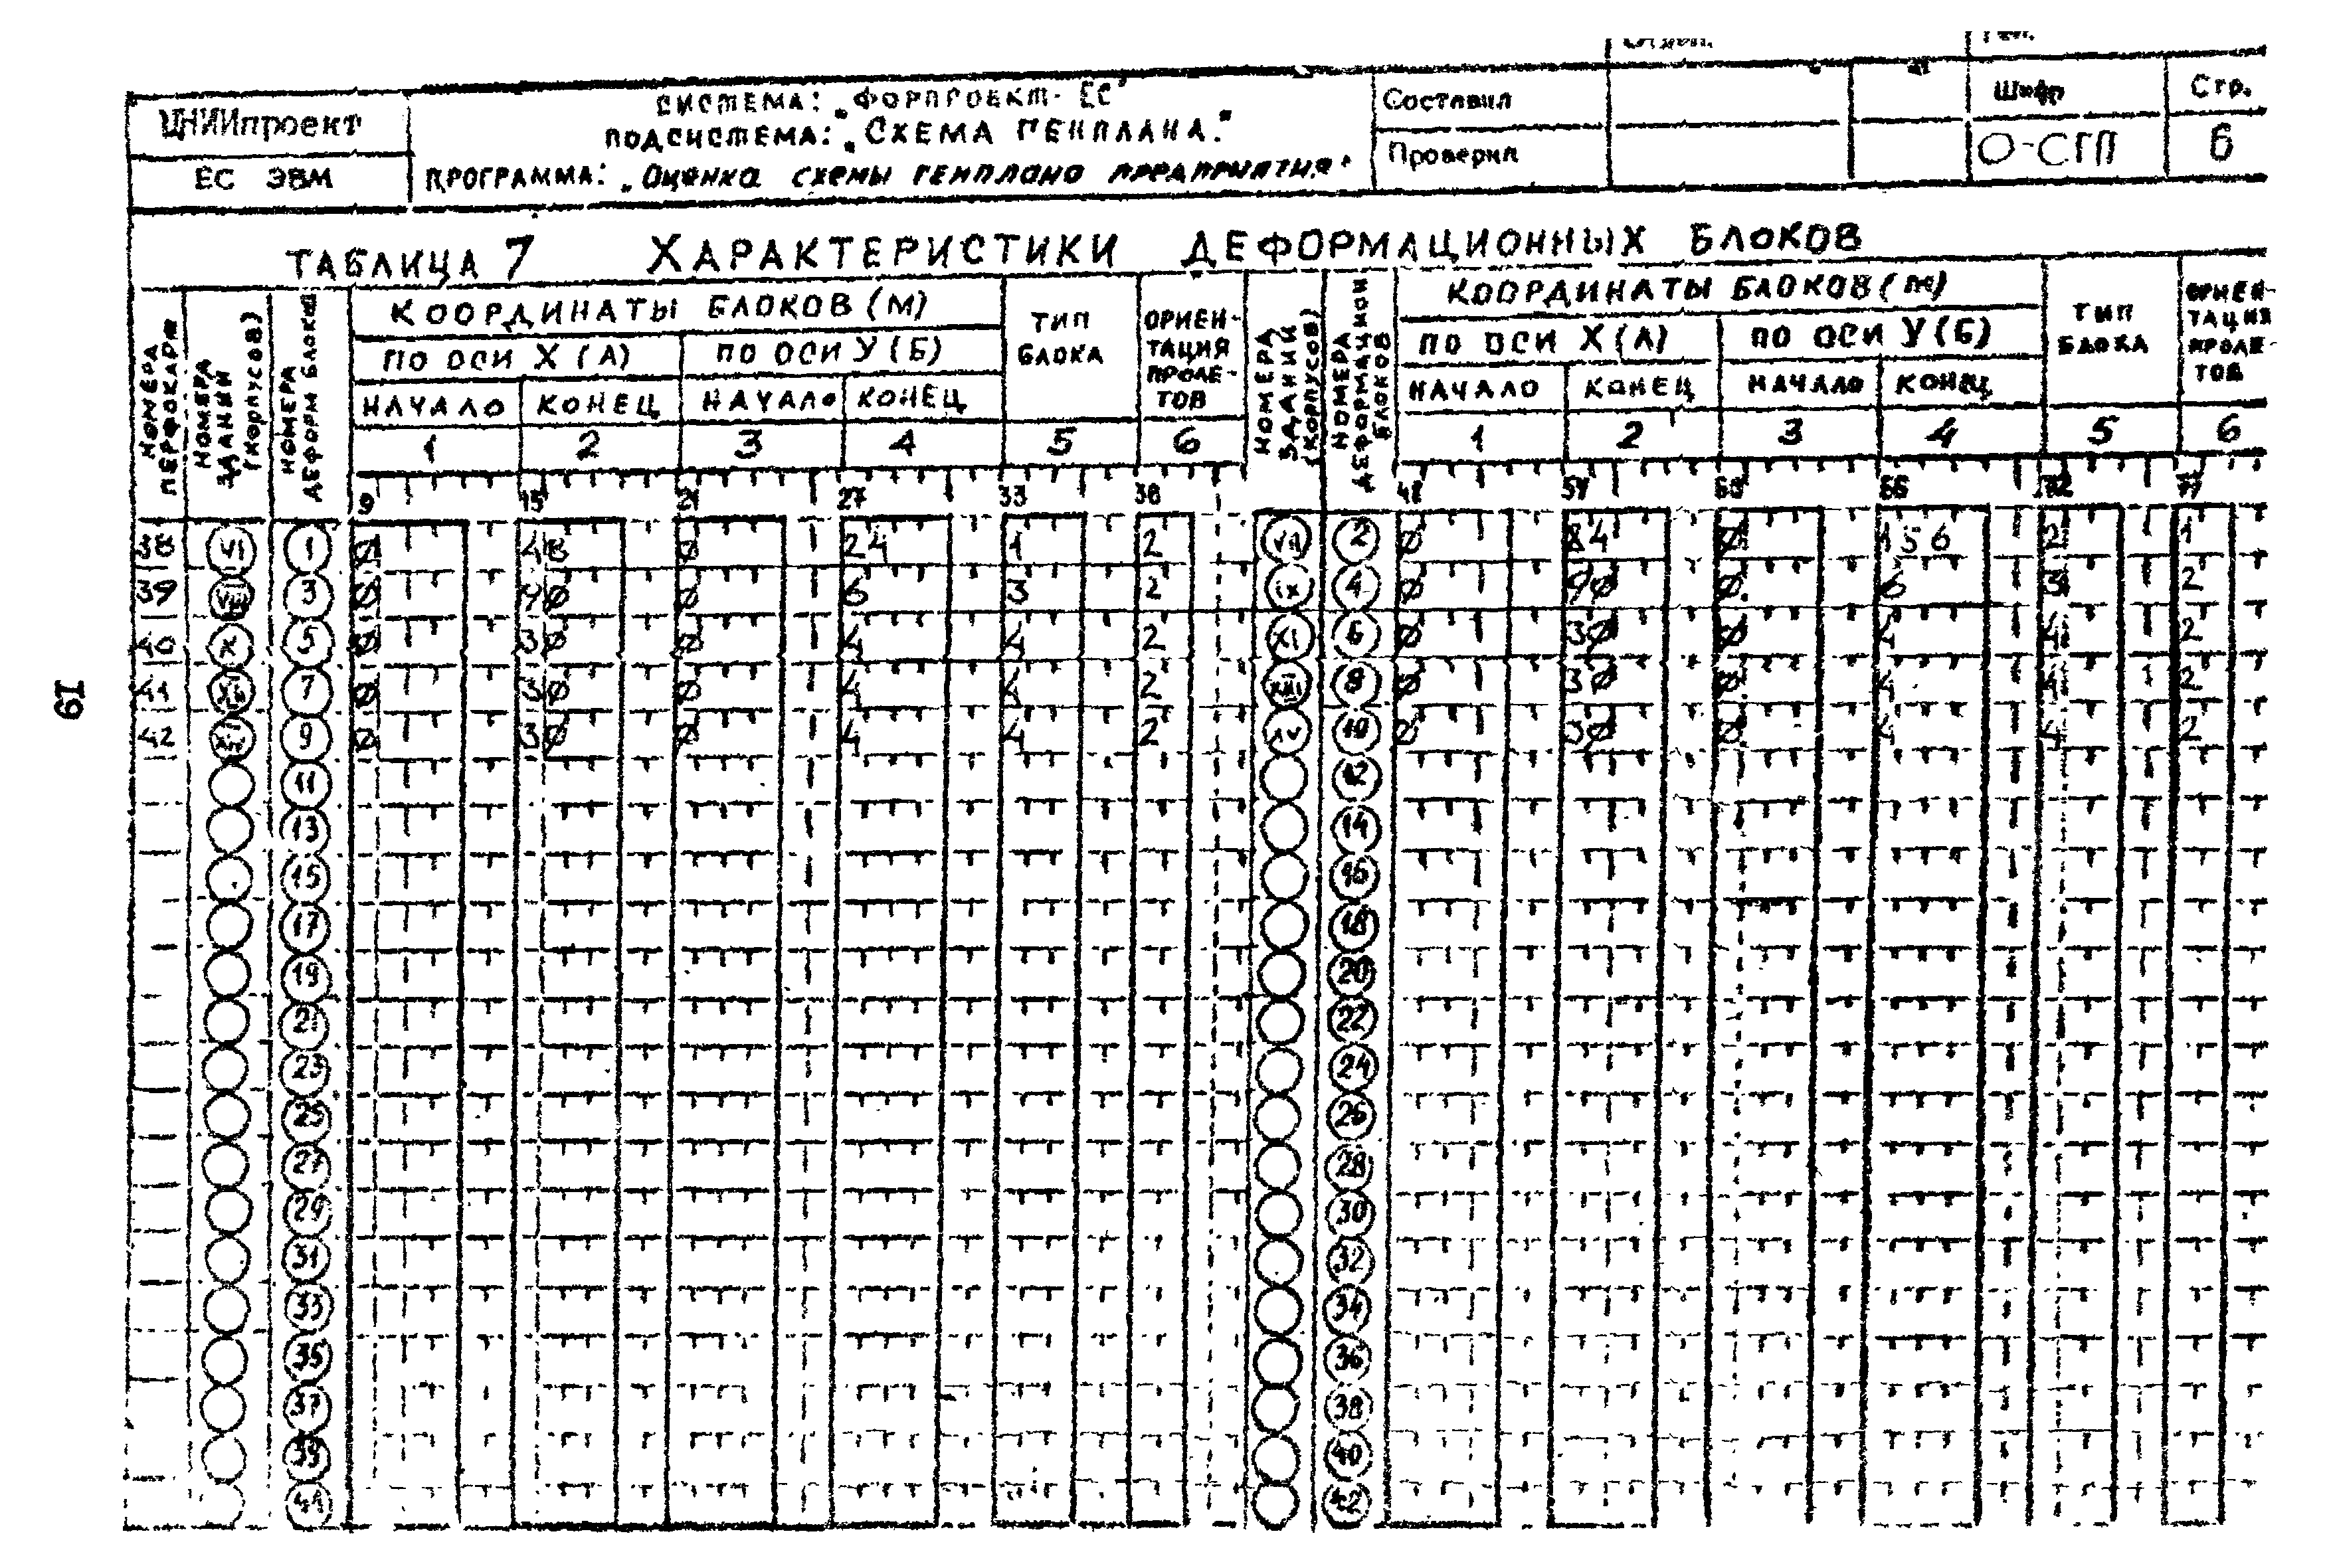 ЦНИИпроект
ЕС ЭВМ
СИСТЕМА: „ФОРПРОЕКТ-ЕС"
ПОДСИСТЕМА: „СХЕМА ГЕНПЛАНА."
ПРОГРАММА: „Оценка схемы генплана предприятия"
Составил
Проверил
Шифр
О-СГП
Стр.
6
ТАБЛИЦА 7 ХАРАКТЕРИСТИКИ ДЕФОРМАЦИОННЫХ БЛОКОВ
НОМЕРА ПЕРФОКАРТ
НОМЕРА ЗДАНИЙ (КОРПУСОВ)
НОМЕРА ДЕФОРМ БЛОКОВ
КООРДИНАТЫ БЛОКОВ (М)
ПО ОСИ Х (А) ПО ОСИ У (Б)
НАЧАЛО КОНЕЦ НАЧАЛО КОНЕЦ
ТИП БЛОКА
ОРИЕН-
ТАЦИЯ
ПРОЛЕ-
ТОВ
НОМЕРА ЗДАНИЙ (КОРПУСОВ)
НОМЕРА ДЕФОРМАЦИОН БЛОКОВ
КООРДИНАТЫ БЛОКОВ (М)
ПО ОСИ Х (А) ПО ОСИ У (Б)
НАЧАЛО КОНЕЦ НАЧАЛО КОНЕЦ
ТИП БЛОКА
ОРИЕН-
ТАЦИЯ
ПРОЛЕ-
ТОВ
1 2 3 4 5 6 1 2 3 4 5 6
9 15 21 27 33 38
38 VI 1 Ø 48 Ø 24 1 2 VII 2 Ø 84 Ø 156 2 1
39 VIII 3 Ø 9Ø Ø 6 3 2 IX 4 Ø 9Ø Ø 6 3 2
40 X 5 Ø 3Ø Ø 4 4 2 XI 6 Ø 3Ø Ø 4 4 2
41 XII 7 Ø 3Ø Ø 4 4 2 XIII 8 Ø 3Ø Ø 4 4 2
42 XIV 9 Ø 3Ø Ø 4 4 2 XV 10 Ø 3Ø Ø 4 4 2
11 12
13 14
15 16
17 18
19 20
21 22
23 24
25 26
27 28
29 30
31 32
33 34
35 36
37 38
39 40
41 42
61